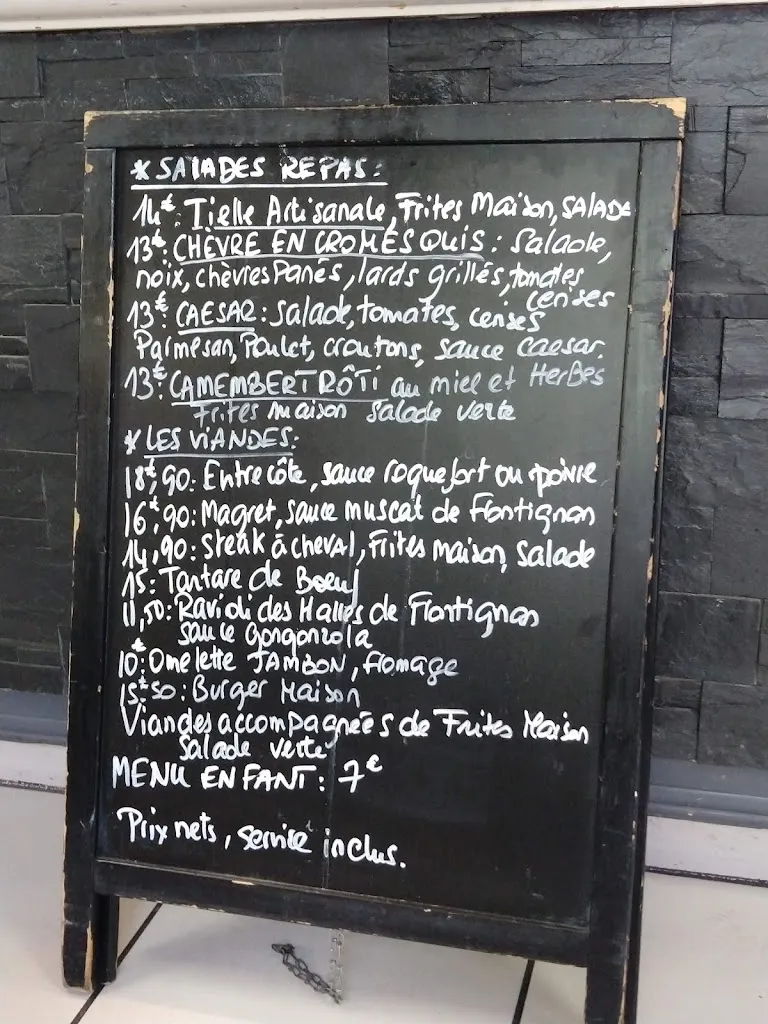 * SALADES REPAS:
14€: Tielle Artisanale, Frites Maison, SALADE
13€: CHÈVRE EN CROMESQUIS: Salade,
noix, chèvres Panés, lards grillés, tomates
cerises
13€: CAESAR: Salade, tomates, cerises
Parmesan, Poulet, croutons, sauce caesar.
13€: CAMEMBERT RÔTI au miel et HerBes
Frites maison salade verte
* LES VIANDES:
18€,90: Entrecôte, sauce roquefort ou poivre
16€,90: Magret, sauce muscat de Frontignan
14,90: Steak à cheval, Frites maison, Salade
15: Tartare de Boeuf
11,50: Ravioli des Halles de Frontignan
sauce gorgonzola
10€: Omelette JAMBON, fromage
15€50: Burger Maison
Viandes accompagnées de Frites Maison
Salade verte
MENU ENFANT: 7€
Prix nets, service inclus.